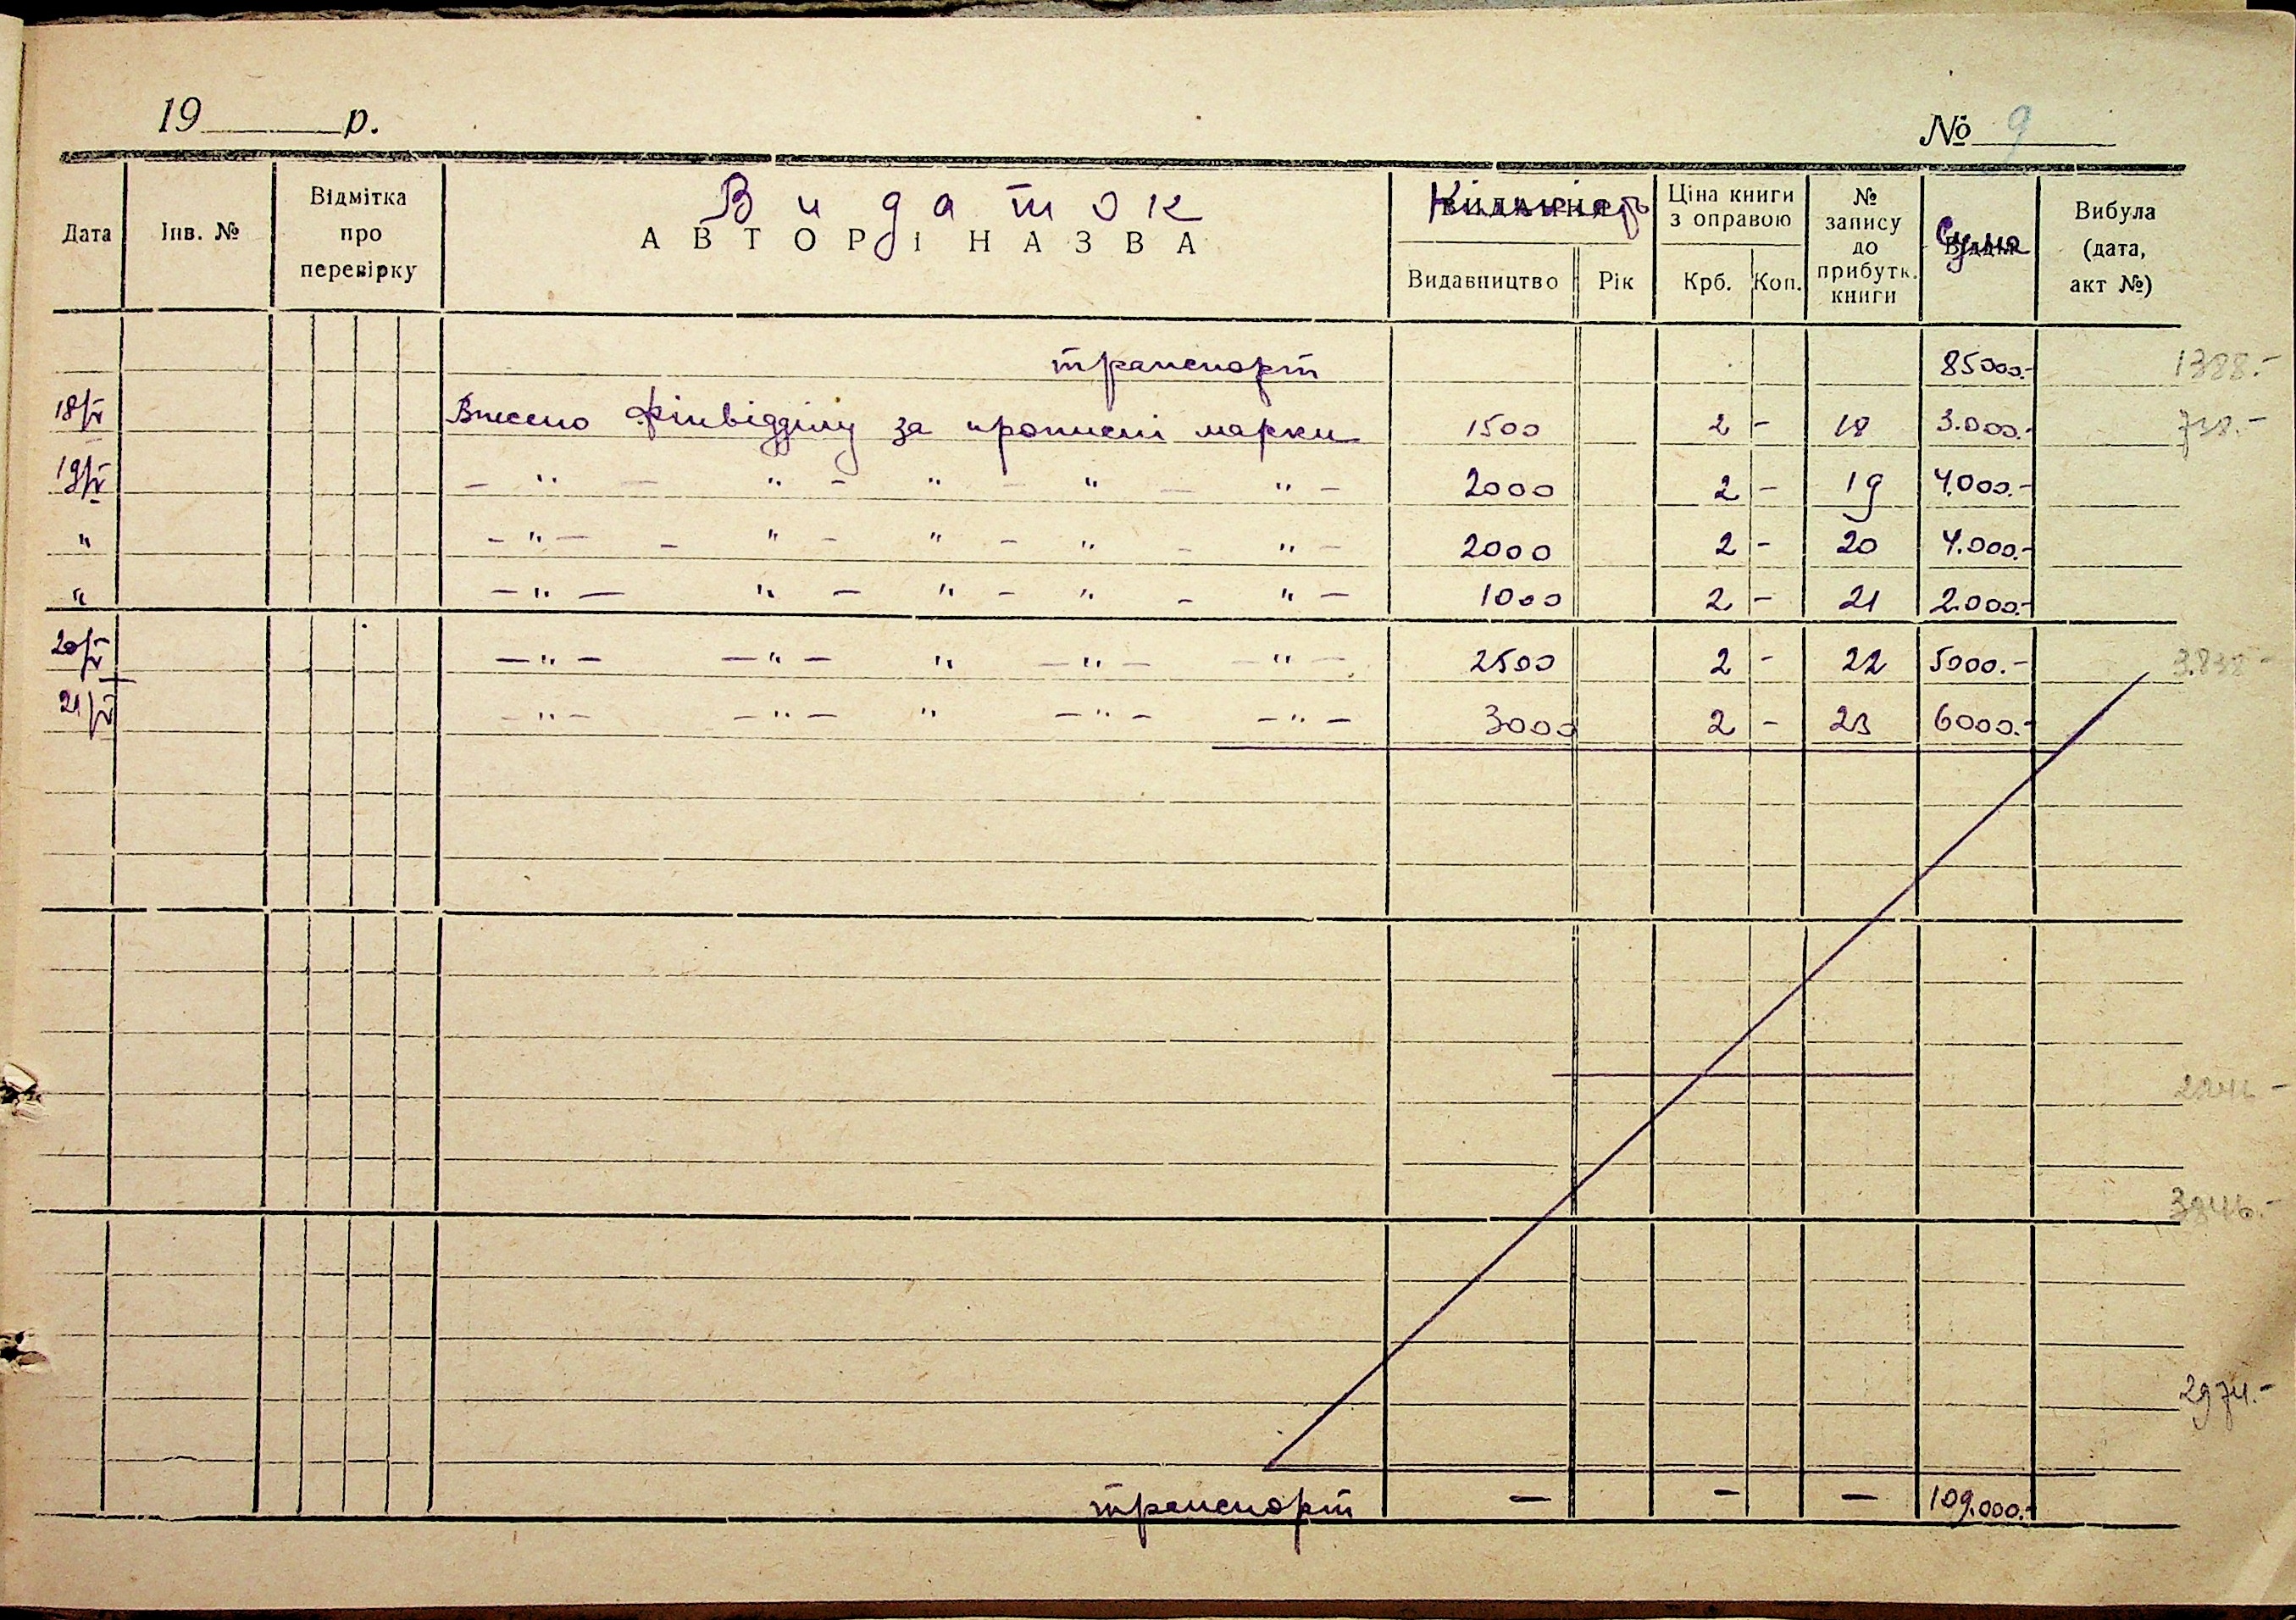 19 р.
№ 9
Дата Інв. № Відмітка про перевірку Видаток АВТОР І НАЗВА Кількість Видавництво Рік Ціна книги з оправою Крб. Коп. № запису до прибутк. книги Сума Вибула (дата, акт №)
транспорт 85000.- 1388.-
18/V Внесено Фінвідділу за прописні марки 1500 2 - 18 3.000.- 738.-
19/V - " - " - " - " - " - 2000 2 - 19 4.000.-
" - " - - " - " - " - " - 2000 2 - 20 4.000.-
" - " - " - " - " - " - 1000 2 - 21 2.000.-
20/V - " - - " - " - " - - " - 2500 2 - 22 5000.- 3.838-
21/V - " - - " - " - " - - " - 3000 2 - 23 6000.-
3846.-
2974.-
транспорт - - - 109.000.-